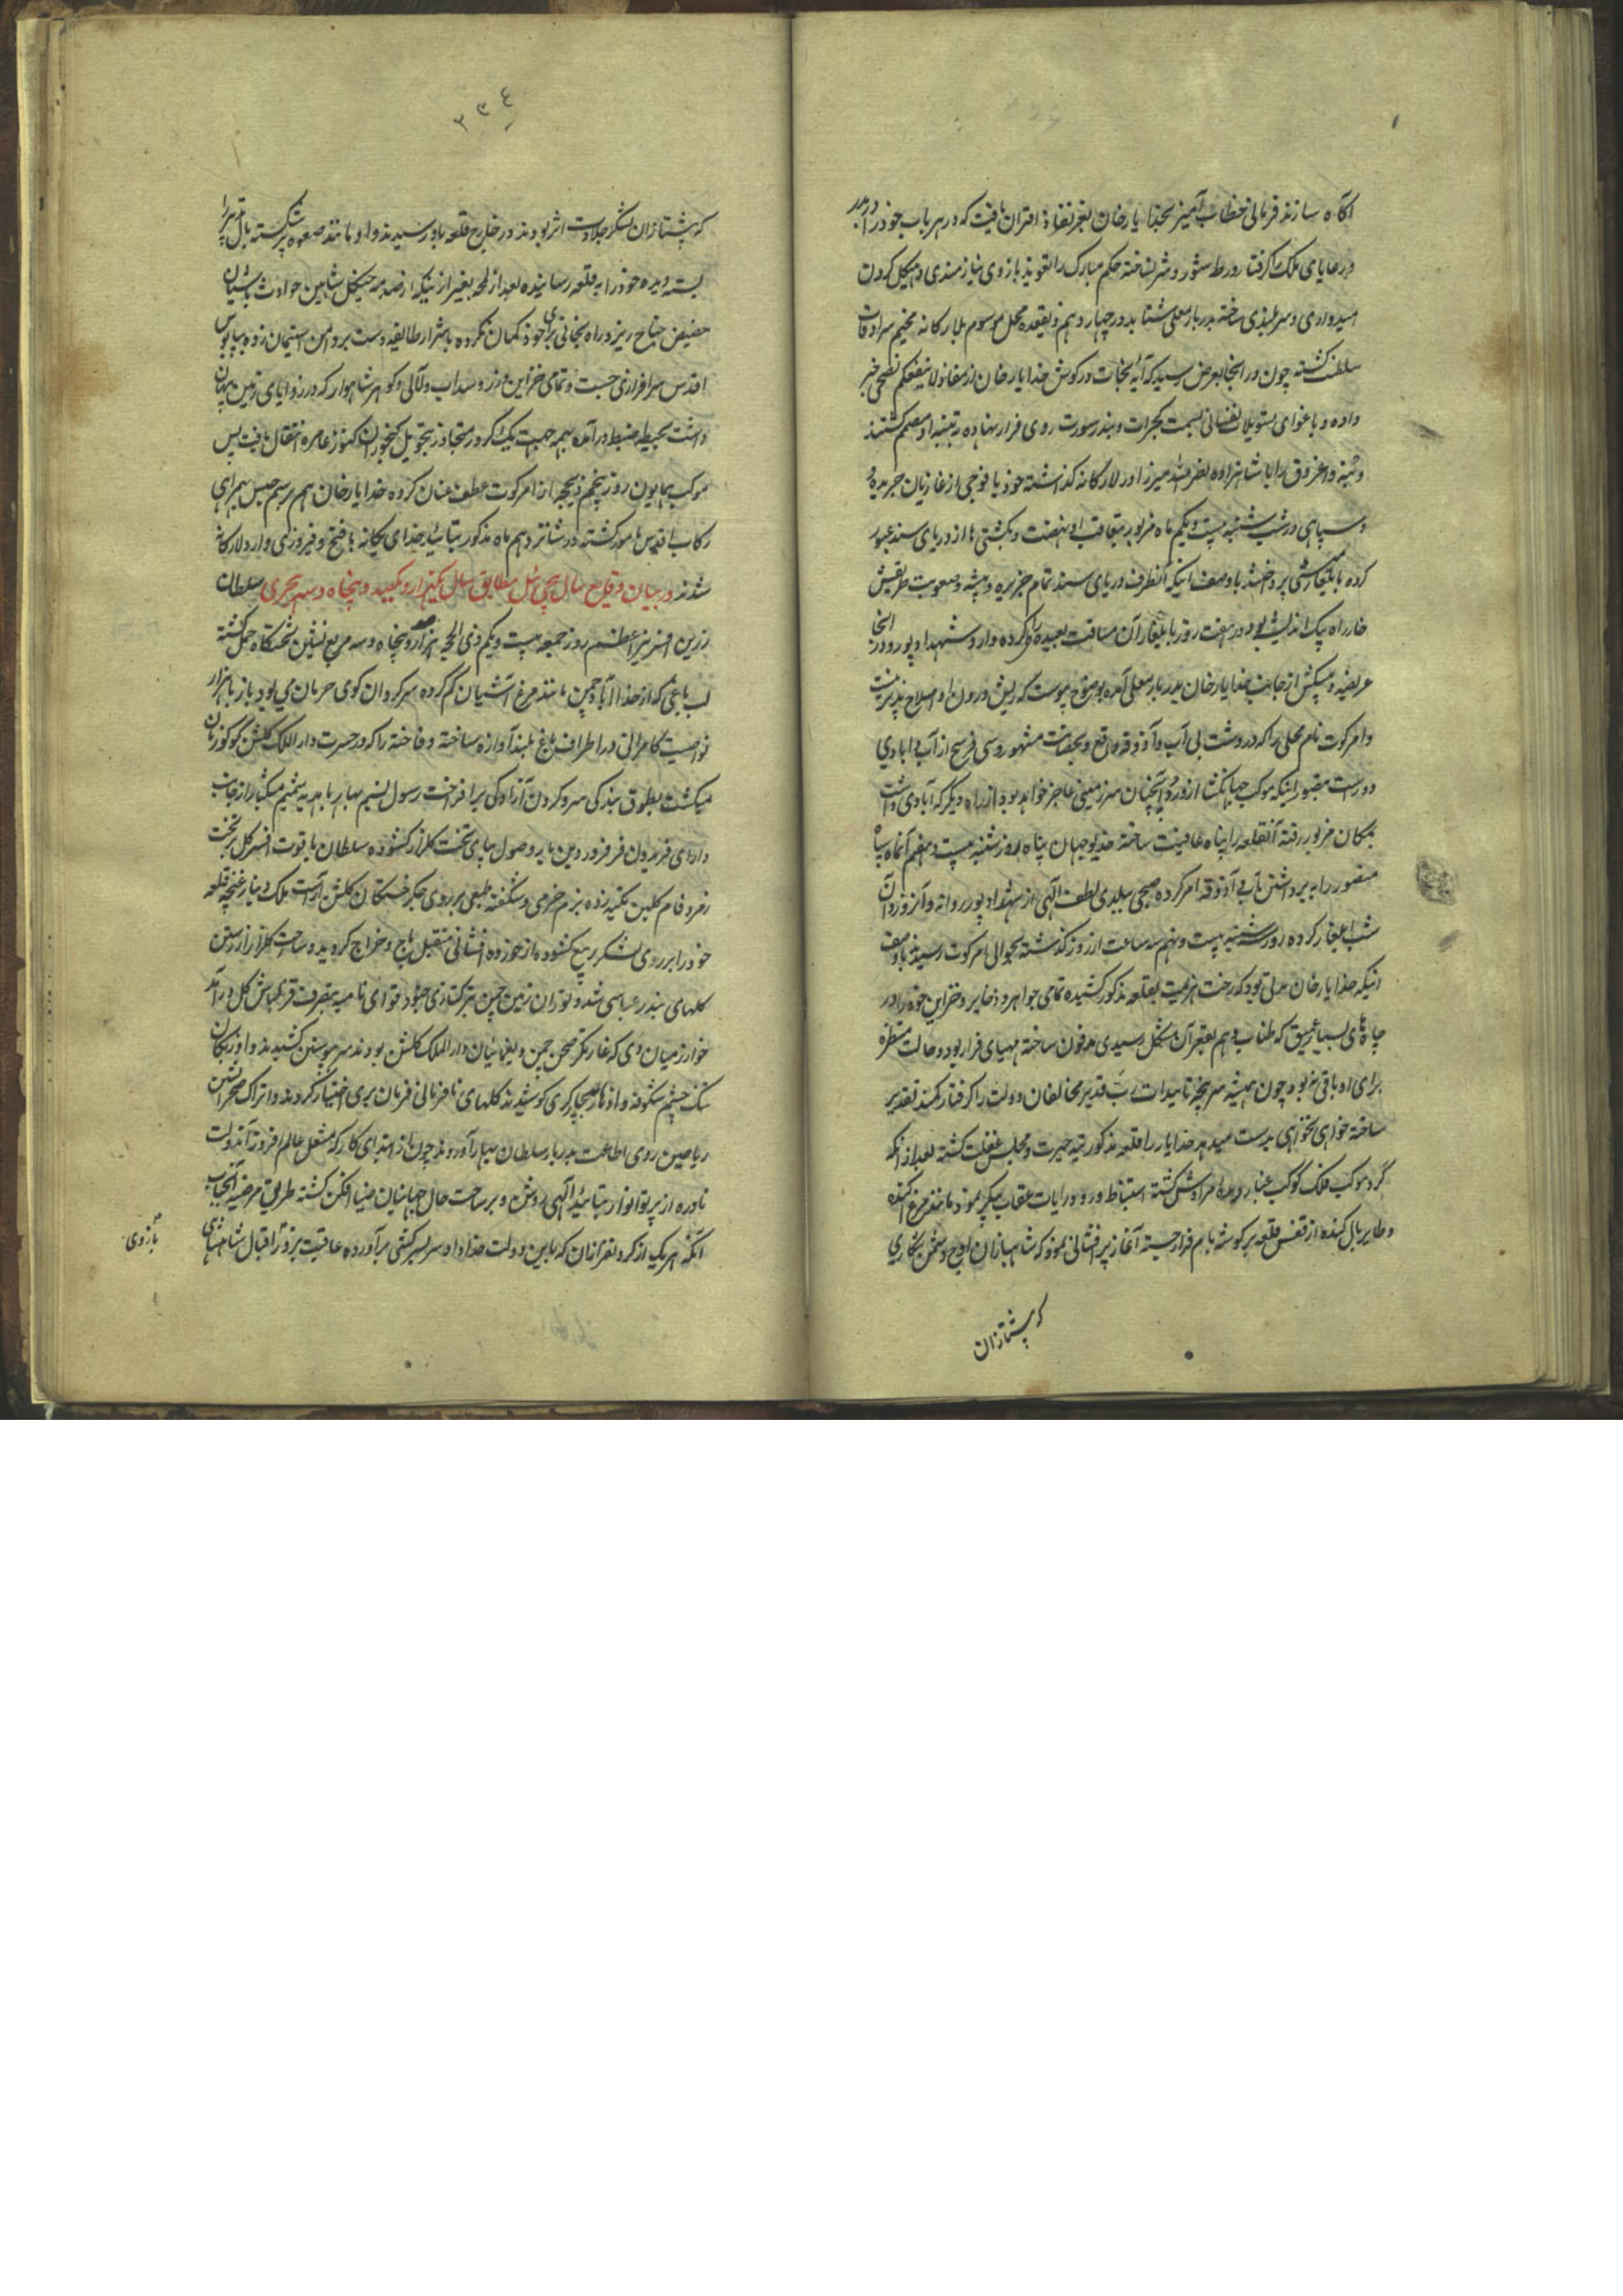 آگاه سازند فرمانی خطاب آمیز بخدا یار خان بعز نفاذ اقتران یافت که در هر باب خود را در آمد
و رعایای ملک را گرفتار ورطه شور و شر نساخته حکم مبارک را تعویذ بازوی نیازمندی و هیکل گردن
امیدواری و سربلندی ساخته بدربار معلی شتابد در چهاردهم ذیقعده محل موسوم بلارکانه مخیم سرادقات
سلطنت گشته چون در آنجا بعرض رسید که آیه نجات در گوش خدایار خان از مفاد لا ینفعکم نصحی خبر
داده و باغوای تسویلات نفسانی بسمت گجرات و بندر سورت روی فرار نهاده به تنبیه او مصمم گشتند
و بنه و اغروق را با شاهزاده نصرالله میرزا در لارکانه گذاشته خود با فوجی از غازیان جریده
و سپاهی در شب شنبه بیست و یکم ماه مزبور بتعاقب او نهضت و بکشتی ها از دریای سند عبور
کرده بایلغار کشی پرداختند با وصف اینکه آنطرف دریای سند تمام جزیره و بیشه و صعوبت طریقش
خار راه پیک اندیشه بود در هفت روز بایلغار آن مسافت بعیده طی کرده وارد شهدادپور و در آنجا
عریضه و پیشکش از جانب خدایار خان بدربار معلی آمده بوضوح پیوست که ریش درون او اصلاح پذیر نیست
و امرکوت نام محلی را که در دشت بی آب و آذوقه واقع و بحصانت مشهور و سی فرسخ از آب و آبادی
دور است بتصور اینکه موکب جهانگشا از ورود آنچنان سرزمینی عاجز خواهد بود از راه دیگر که آبادی داشت
بمکان مزبور رفته آنقلعه را پناه عافیت ساخته خدیو جهان پناه روز شنبه بیست و هفتم آنماه سپاه
منصور را به برداشتن آب و آذوقه امر کرده صبحی ببلدی لطف الهی از شهدادپور روانه و آنروز و آن
شب ایلغار کرده روز شنبه بیست و نهم سه ساعت از روز گذشته بحوالی امرکوت رسیدند با وصف
اینکه خدایار خان مدتی بود که رخت هزیمت بقلعه مذکور کشیده تمامی جواهر و ذخایر و خزاین خود را در
چاه های بسیار عمیق که طناب وهم بقعر آن مشکل رسیدی مدفون ساخته مهیای فرار بود و حالت منتظره
برای او باقی نبود چون همیشه سرپنجه تاییدات رب قدیر مخالفان دولت را گرفتار کمند تقدیر
ساخته خواهی نخواهی بدست میدهد خدایار را قلعه مذکور تیه حیرت و مجلس غفلت گشته بعد از آنکه
گرد موکب فلک کوکب غبار دیده مرادش گشته استنباط ورود رایات عقاب پیکر نمود مانند مرغ پرکنده
و طایر بال کنده از قفس قلعه بر گوشه بام فرار جسته آغاز پرافشانی نمود که شاهبازان اوج دشمن شکاری
که پیشتازان
۲۳٤
که پیشتازان لشکر جلادت اثر بودند در خارج قلعه باو رسیدند و او مانند صعوه پر شکسته بال تهور را
بسته دیده خود را به قلعه رسانیده بعد از لمحه بغیر از اینکه از صدمه چنگل شاهین حوادث باشیان
حضیض جناح ریز و راه نجاتی برای خود گمان نکرده با اشرار طایفه دست بر دامن استیمان زده بپابوس
اقدس سرافرازی جست و تمامی خزاین و زر و سیاب و لآلی و گوهر شاهوار که در زوایای زمین پنهان
داشت بحیطه ضبط درآمده بهمه جهت یک کرور متجاوز بتحویل گنجوران کنوز عامره انتقال یافت پس
موکب همایون روز پنجم ذیحجه از امرکوت عطف عنان کرده خدایار خان هم برسم حبس بهمراهی
رکاب اقدس مامور گشته در شانزدهم ماه مذکور بتائید خدای یگانه با فتح و فیروزی وارد لارکانه
شدند در بیان وقایع سال پیچی ئیل مطابق سال یکهزار و یکصد و پنجاه و سه هجری سلطان
زرین افسر نیر اعظم روز جمعه بیست و یکم ذی الحجه هزار و صد و پنجاه و سه مربع نشین تختگاه حمل گشته
لب باغی که از صدا آباد چمن مانند مرغ آشیان گم کرده سرگردان کوی حرمان می بود باز با هزار
نوا صیت کامرانی در اطراف باغ بلند آوازه ساخته و فاخته را که در حسرت دار الملک گلشن کوکو زنان
میگشت بطوق بندگی سرو گردن آزادگی برافراخت رسول نسیم بهار با هدیه شمیم مشکبار از جانب
دارای فریدون فر فروردین پایه وصول بپای تخت گلزار گشوده سلطان یاقوت افسر گل بر تخت
زمرد فام گلبن تکیه زده بزم خرمی و شگفته طبعی بر روی جگر خستگان گلشن آراست ملک دینار غنچه قلعه
خود را بر روی لشکر ربیع گشوده از خورده افشانی متقبل باج و خراج گردید و ساحت گلزار از رستن
گلهای بندر عباسی شد و توران زمین چمن بترکتازی جنود قوای نامیه بتصرف قزلباش گل درآمد
خوارزمیان دی که غارتگر صحن چمن و یغمائیان دارالملک گلشن بودند سر بپوستین کشیدند و اوزبکان
تنگ چشم شکوفه و ازهار بچاکری کوشیدند گلهای نافرمانی فرمان بری اختیار کردند و اتراک صحرانشین
ریاحین روی اطاعت بدربار سلطان بهار آوردند چون از ابتدای کار که مشعل عالم افروز آندولت
نادره از پرتو انوار بتائید الهی روشن و بر ساحت حال جهانیان ضیا افکن گشته طریقه مرضیه آنجناب
آنکه هر یک از گردنفرازان که باین دولت خداداد سر بسرکشی برآورده عاقبت بزور اقبال شاهنشاهی
بازوی